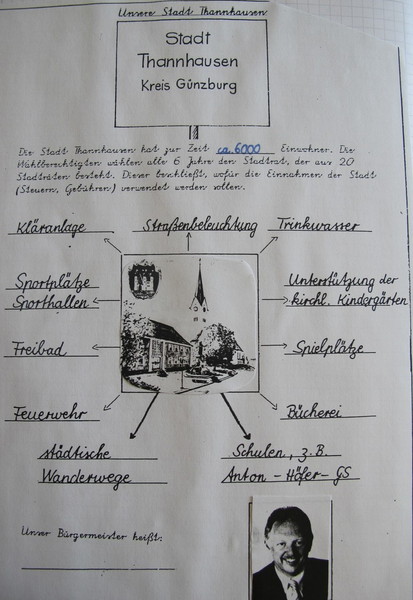 Unsere Stadt Thannhausen
Stadt
Thannhausen
Kreis Günzburg
Die Stadt Thannhausen hat zur Zeit ca. 6000 Einwohner. Die
Wahlberechtigten wählen alle 6 Jahre den Stadtrat, der aus 20
Stadträten besteht. Dieser beschließt, wofür die Einnahmen der Stadt
(Steuern, Gebühren) verwendet werden sollen.
Kläranlage
Straßenbeleuchtung
Trinkwasser
Sportplätze
Sporthallen
Unterstützung der
kirchl. Kindergärten
Freibad
Spielplätze
Feuerwehr
Bücherei
städtische
Wanderwege
Schulen, z.B.
Anton-Höfer-GS
Unser Bürgermeister heißt: